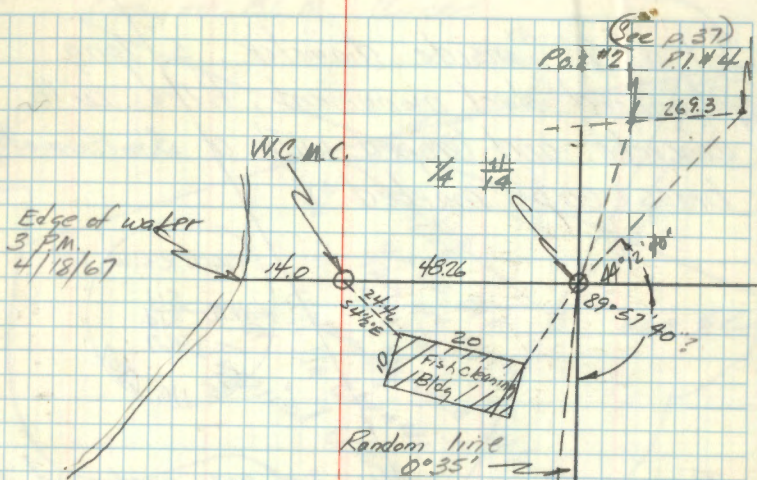 (See p. 37)
P.o.2 #2 P.I. #4
269.3
W.C.M.C.
1/4 11/14
Edge of water
3 P.M.
4/18/67
14.0
48.26
44° 12' 40"
89° 57' 40"?
24.46
S 41½°E
20
10
Fish Cleaning
Bldg
Random line
0° 35'